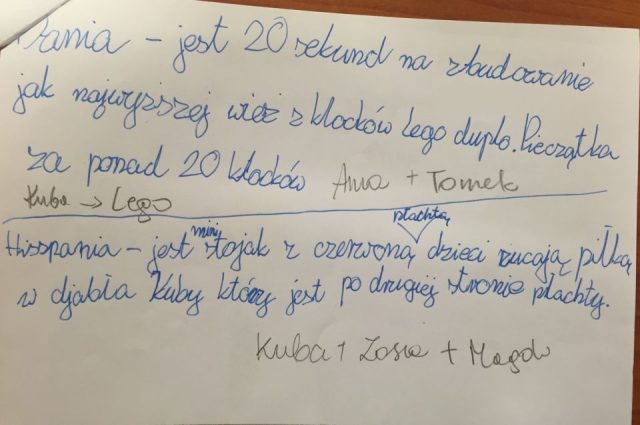 Dania - jest 20 sekund na zbudowanie
jak najwyższej wież z klocków Lego duplo. Pieczątka
za ponad 20 klocków Anna + Tomek
Kuba → Lego
płachtą
mini
Hiszpania - jest stojak z czerwoną dzieci rzucają piłką
w djabła Kuby który jest po drugiej stronie płachty.
Kuba + Zosia + Magda